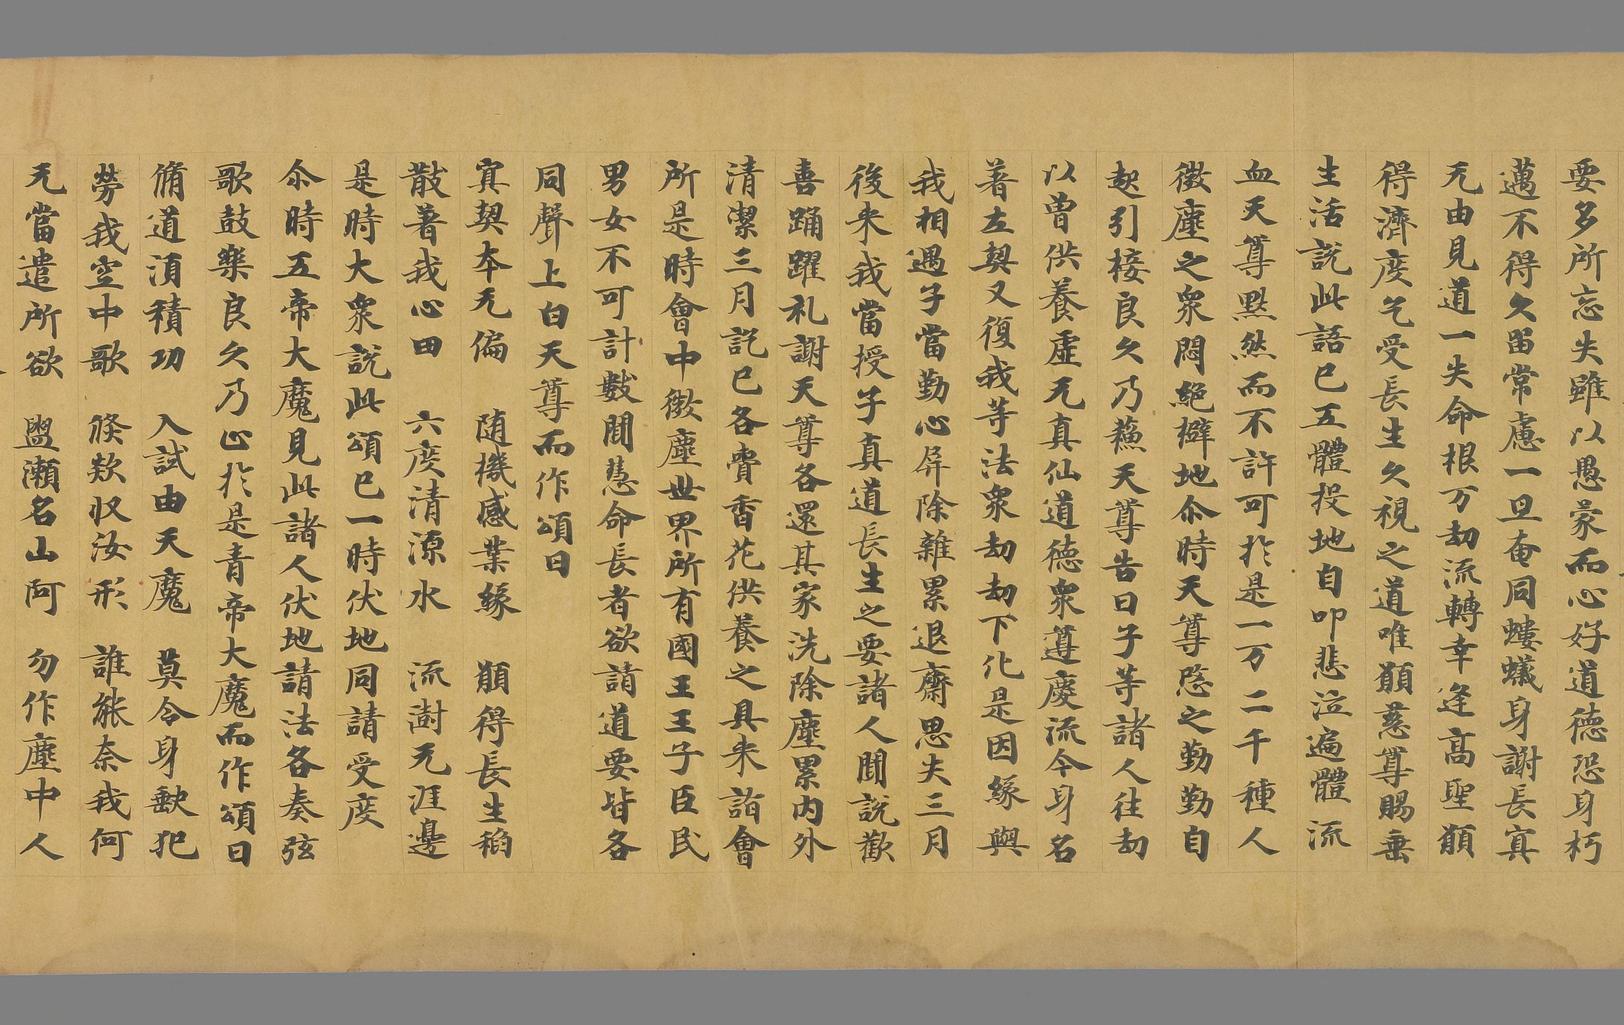 要多所忘失雖以愚蒙而心好道德恐身朽
邁不得久留常慮一旦奄同螻蟻身謝長冥
无由見道一失命根万劫流轉幸逢高聖願
得濟度乞受長生久視之道唯願慈尊賜垂
生活說此語已五體投地自叩悲泣遍體流
血天尊默然而不許可於是一万二千種人
微塵之衆悶絕擗地尒時天尊愍之勤勤自
起引接良久乃蘓天尊告曰子等諸人往劫
以曾供養虛无真仙道德衆尊慶流今身名
著左契又復我等法衆劫劫下化是因緣與
我相遇子當勤心屏除雜累退齋思失三月
後来我當授子真道長生之要諸人聞說歡
喜踊躍礼謝天尊各還其家洗除塵累内外
清潔三月訖已各賷香花供養之具来詣會
所是時會中微塵世界所有國王王子臣民
男女不可計數聞慧命長者欲請道要皆各
同聲上白天尊而作頌曰
寘契夲无偏 随機感業緣 願得長生稻
散著我心田 六度清源水 流澍无涯邊
是時大衆說此頌已一時伏地同請受度
尒時五帝大魔見此諸人伏地請法各奏弦
歌鼓樂良久乃止於是青帝大魔而作頌曰
脩道湏積功 入試由天魔 莫令身歃犯
勞我空中歌 倏欻収汝形 誰能奈我何
无當遣所欲 盥瀨名山阿 勿作塵中人